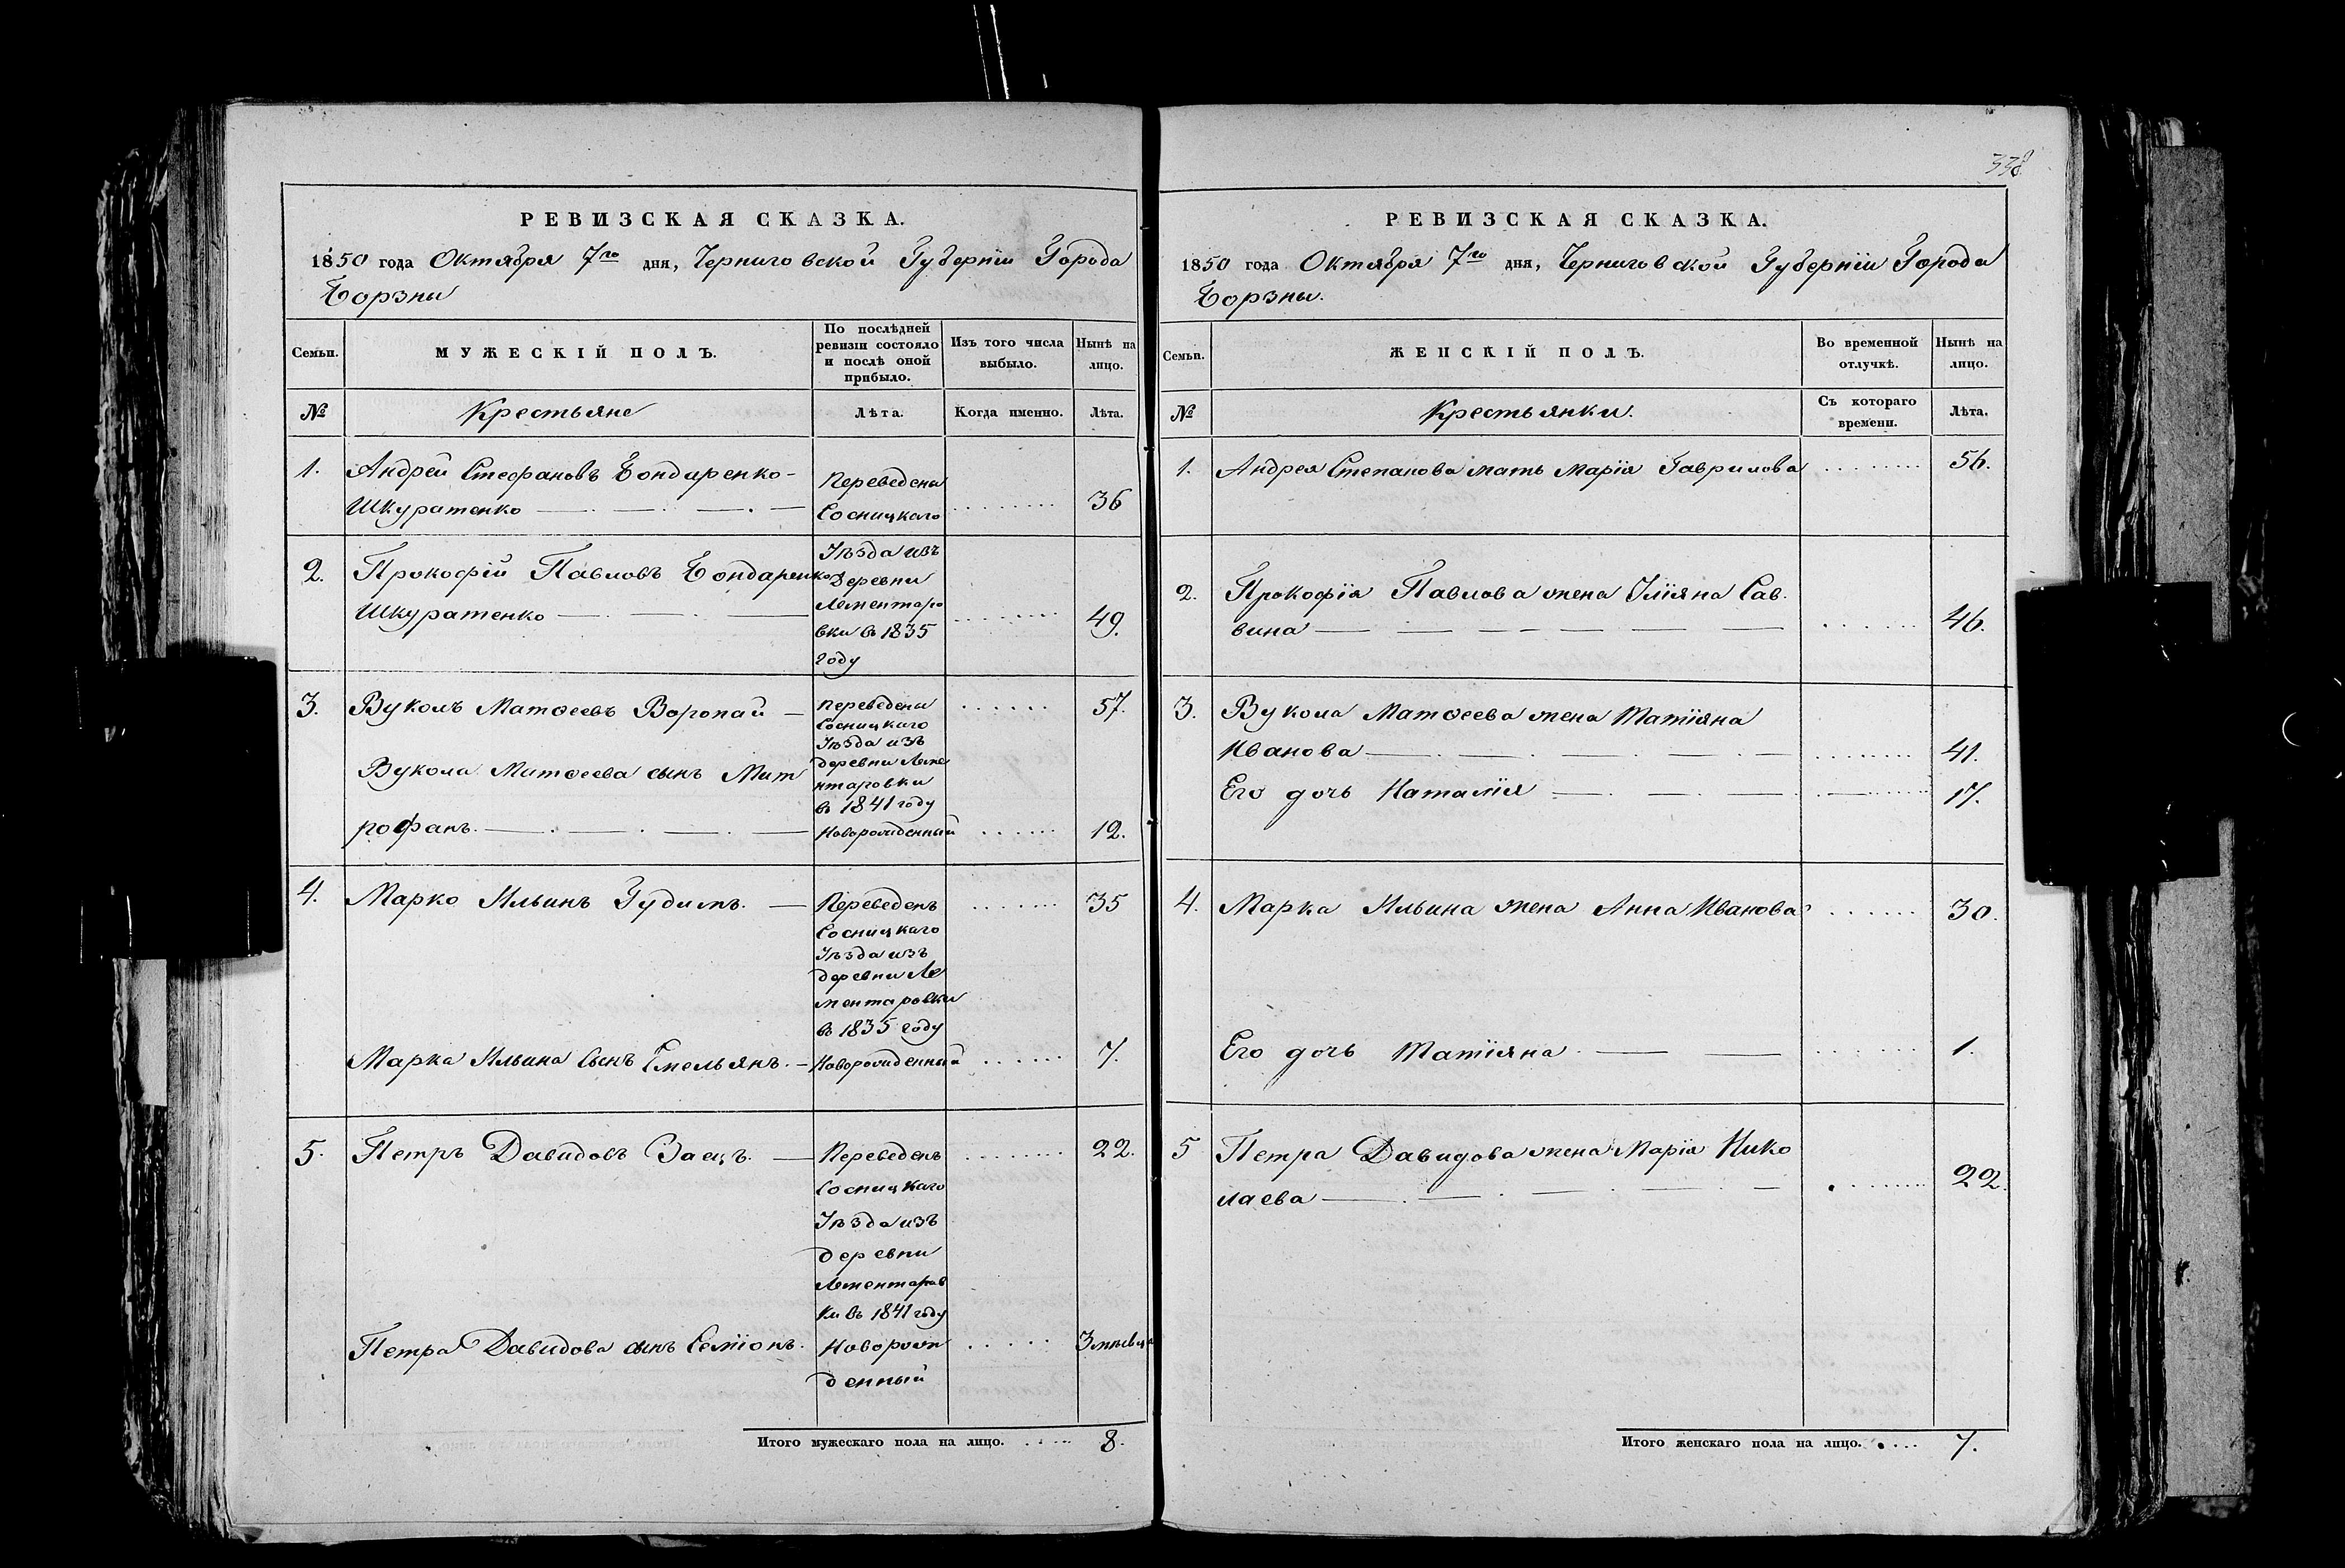 РЕВИЗСКАЯ СКАЗКА.
1850 года Октября 7го дня, Черниговской Губернiи Города
Борзны
Семьи.
МУЖЕСКІЙ ПОЛЪ.
По послѣдней
ревизіи состояло
и послѣ оной
прибыло.
Изъ того числа
выбыло.
Нынѣ на
лицо.
№
Крестьяне
Лѣта.
Когда именно.
Лѣта.
1. Андрей Стефановъ Бондаренко-
Шкуратенко
Переведены
Сосницкаго
36
2. Прокофій Павловъ Бондаренко
Шкуратенко
Уѣзда изъ
Деревни
Лементаро
вки въ 1835
году
49.
3. Вуколъ Матѳеевъ Воропай
Переведены
Сосницкаго
Уѣзда изъ
деревни Леме
нтаровки
въ 1841 году
57.
Вукола Матѳеева сынъ Мит
рофанъ.
Новорожденный
12.
4. Марко Ильинъ Гудимъ.
Переведенъ
Сосницкаго
Уѣзда изъ
деревни Ле
ментаровки
въ 1835 году
35
Марка Ильина Сынъ Емельянъ.
Новорожденный
7.
5. Петръ Давидовъ Заецъ.
Переведенъ
Сосницкаго
Уѣзда изъ
деревни
Лементаров
ки въ 1841 году
22.
Петра Давидова сынъ Семіонъ.
Новорож
денный
3 мѣсяца
Итого мужескаго пола на лицо. 8.
338
РЕВИЗСКАЯ СКАЗКА.
1850 года Октября 7го дня, Черниговской Губерніи Города
Борзны.
Семьи.
ЖЕНСКІЙ ПОЛЪ.
Во временной
отлучкѣ.
Нынѣ на
лицо.
№
Крестьянки.
Съ котораго
времени.
Лѣта.
1. Андрея Степанова мать Марія Гаврилова 56.
2. Прокофія Павлова жена Уліяна Сав.
вина 46.
3. Вукола Матѳеева жена Татіяна
Иванова 41.
Его дочь Наталія 17.
4. Марка Ильина жена Анна Иванова 30.
Его дочь Татіяна 1.
5 Петра Давидова жена Марія Нико
лаева 22.
Итого женскаго пола на лицо. 7.